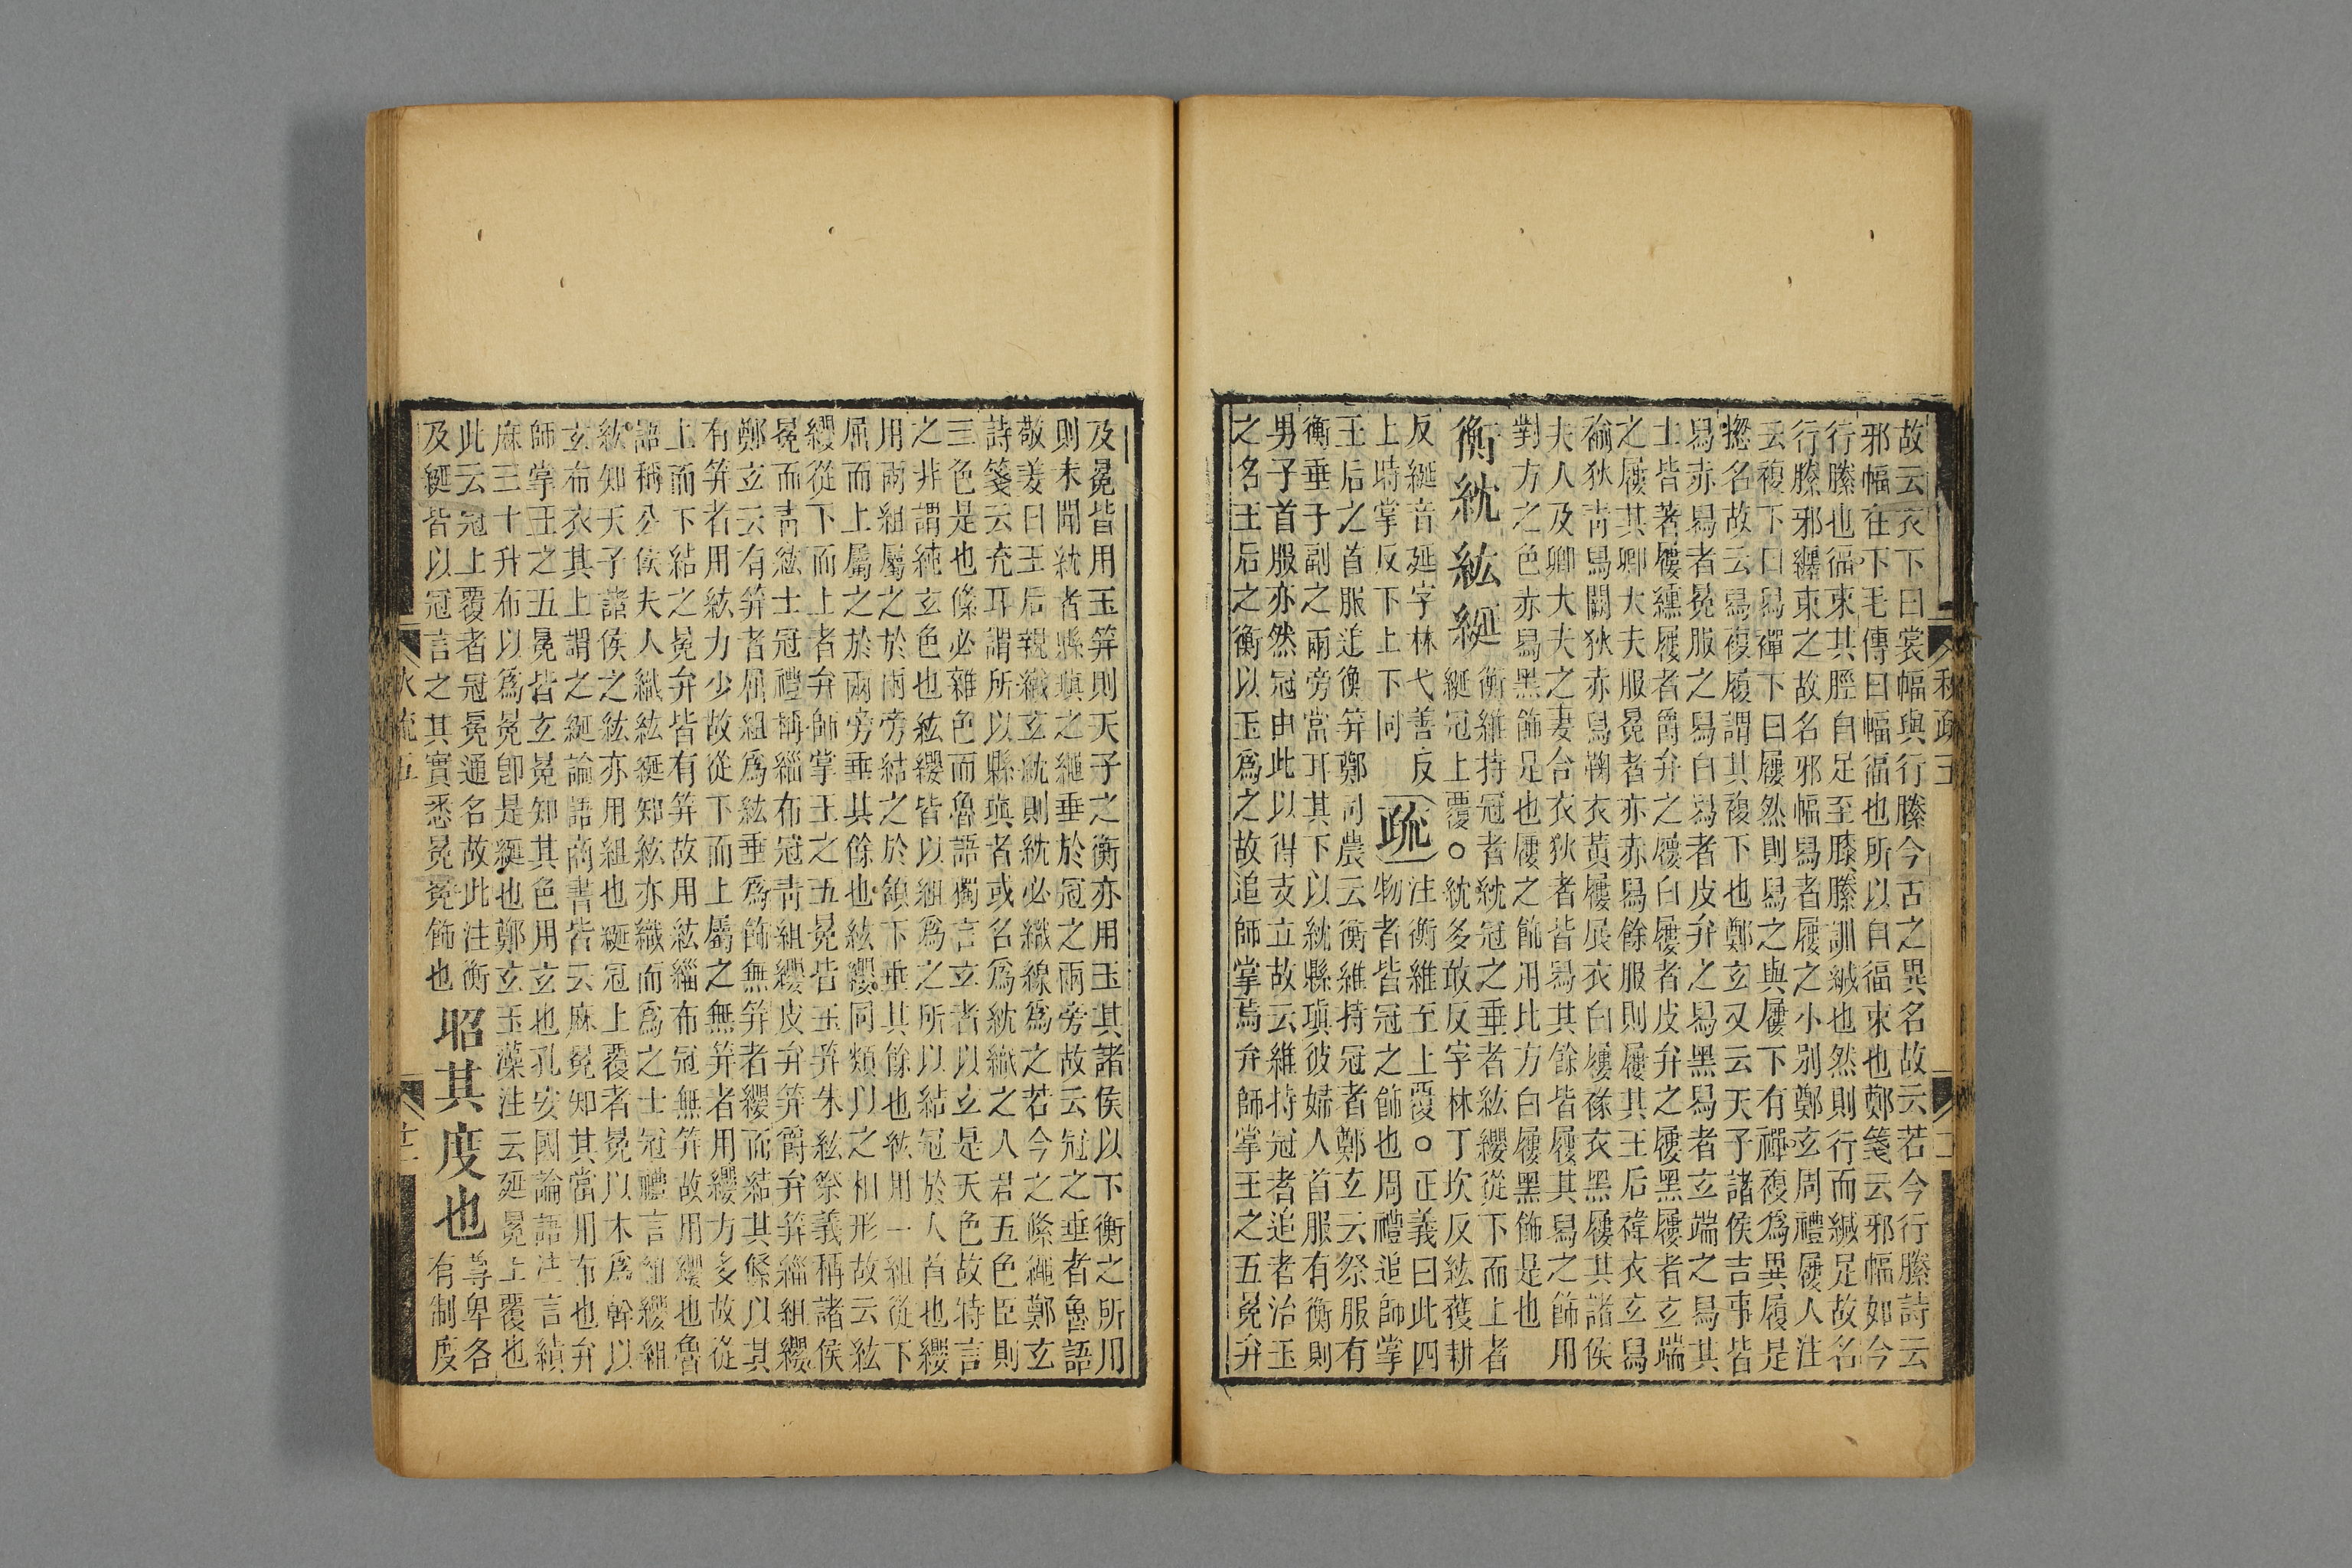 故云衣下曰裳幅與行縢今古之異名故云若今行縢詩云
邪幅在下毛傳曰幅偪也所以自偪束也鄭箋云邪幅如今
行縢也偪束其脛自足至膝縢訓緘也然則行而緘足故名
行縢邪纏束之故名邪幅舄者屨之小別鄭玄周禮屨人注
云複下曰舄禪下曰屨然則舄之與屨下有禪複爲異履是
揔名故云舄複履謂其複下也鄭玄又云天子諸侯吉事皆
舄赤舄者冕服之舄白舄者皮弁之舄黑舄者玄端之舄其
士皆著屨纁屨者爵弁之屨白屨者皮弁之屨黑屨者玄端
之屨其卿大夫服冕者亦赤舄餘服則屨其王后褘衣玄舄
褕狄靑舄闕狄赤舄鞠衣黃屨展衣白屨褖衣黑屨其諸侯
夫人及卿大夫之妻合衣狄者皆舄其餘皆屨其舄之飾用
對方之色赤舄黑飾是也屨之飾用比方白屨黑飾是也
衡紞紘綖
衡維持冠者紞冠之垂者紘纓從下而上者
綖冠上覆○紞多敢反字林丁坎反紘獲耕
反綖音延字林弋善反
上時掌反下上下同
疏
注衡維至上覆○正義曰此四
物者皆冠之飾也周禮追師掌
王后之首服追衡笄鄭司農云衡維持冠者鄭玄云祭服有
衡垂于副之兩旁當耳其下以紞縣瑱彼婦人首服有衡則
男子首服亦然冠由此以得支立故云維持冠者追者治玉
之名王后之衡以玉爲之故追師掌焉弁師掌王之五冕弁
及冕皆用玉笄則天子之衡亦用玉其諸侯以下衡之所用
則未聞紞者縣瑱之繩垂於冠之兩旁故云冠之垂者魯語
敬姜曰王后親織玄紞則紞必織線爲之若今之絛繩鄭玄
詩箋云充耳謂所以縣瑱者或名爲紞織之人君五色臣則
三色是也絛必雜色而魯語獨言玄者以玄是天色故特言
之非謂純玄色也紘纓皆以組爲之所以結冠於人首也纓
用兩組屬之於兩旁結之於頷下垂其餘也紘用一組從下
屈而上屬之於兩旁垂其餘也紘纓同類以之相形故云紘
纓從下而上者弁師掌王之五冕皆玉笄朱紘祭義稱諸侯
冕而靑紘士冠禮稱緇布冠靑組纓皮弁笄爵弁笄緇組纓
鄭玄云有笄者屈組爲紘垂爲飾無笄者纓而結其絛以其
有笄者用紘力少故從下而上屬之無笄者用纓方多故從
上而下結之冕弁皆有笄故用紘緇布冠無笄故用纓也魯
語稱公侯夫人織紘綖知紘亦織而爲之士冠禮言組纓組
紘知天子諸侯之紘亦用組也綖冠上覆者冕以木爲幹以
玄布衣其上謂之綖論語尚書皆云麻冕知其當用布也弁
師掌王之五冕皆玄冕知其色用玄也孔安國論語注言績
麻三十升布以爲冕卽是綖也鄭玄玉藻注云延冕上覆也
此云冠上覆者冠冕通名故此注衡
及綖皆以冠言之其實悉冕冕飾也
昭其度也
尊卑各
有制度